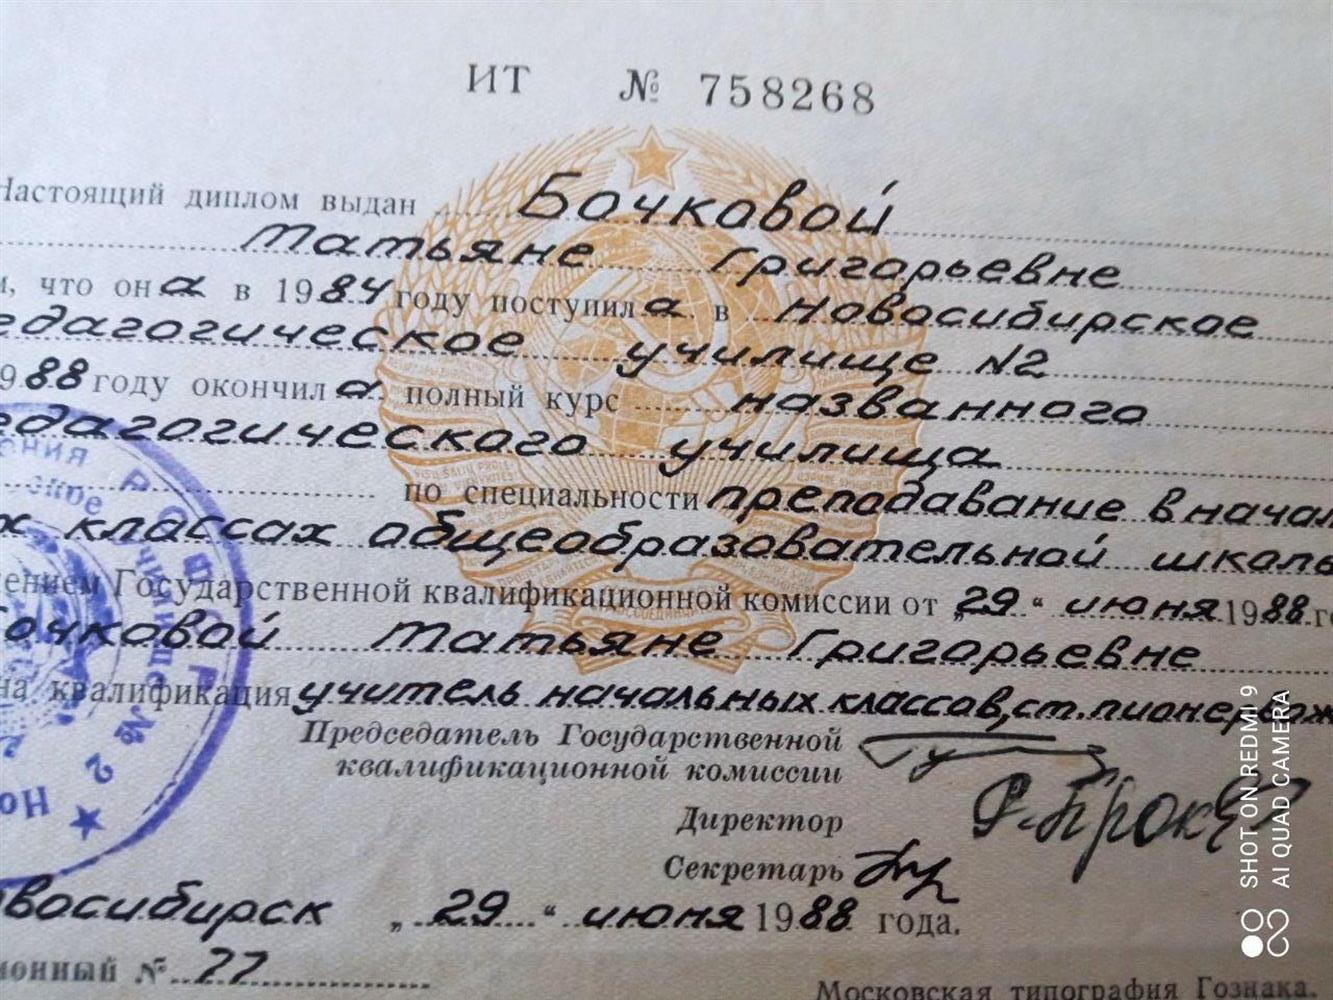 ИТ № 758268
Настоящий диплом выдан Бочковой
Татьяне Григорьевне
м, что она в 1984 году поступила в Новосибирское
едагогическое училище №2
988 году окончила полный курс названного
едагогического училища
по специальности преподавание в начал
х классах общеобразовательной школы
ением Государственной квалификационной комиссии от „29“ июня 1988 г
Бочковой Татьяне Григорьевне
на квалификация учитель начальных классов, ст. пионервож
Председатель Государственной
квалификационной комиссии
Директор
Секретарь
овосибирск „29“ июня 1988 года.
ионный № 77
Московская типография Гознака.
SHOT ON REDMI 9
AI QUAD CAMERA